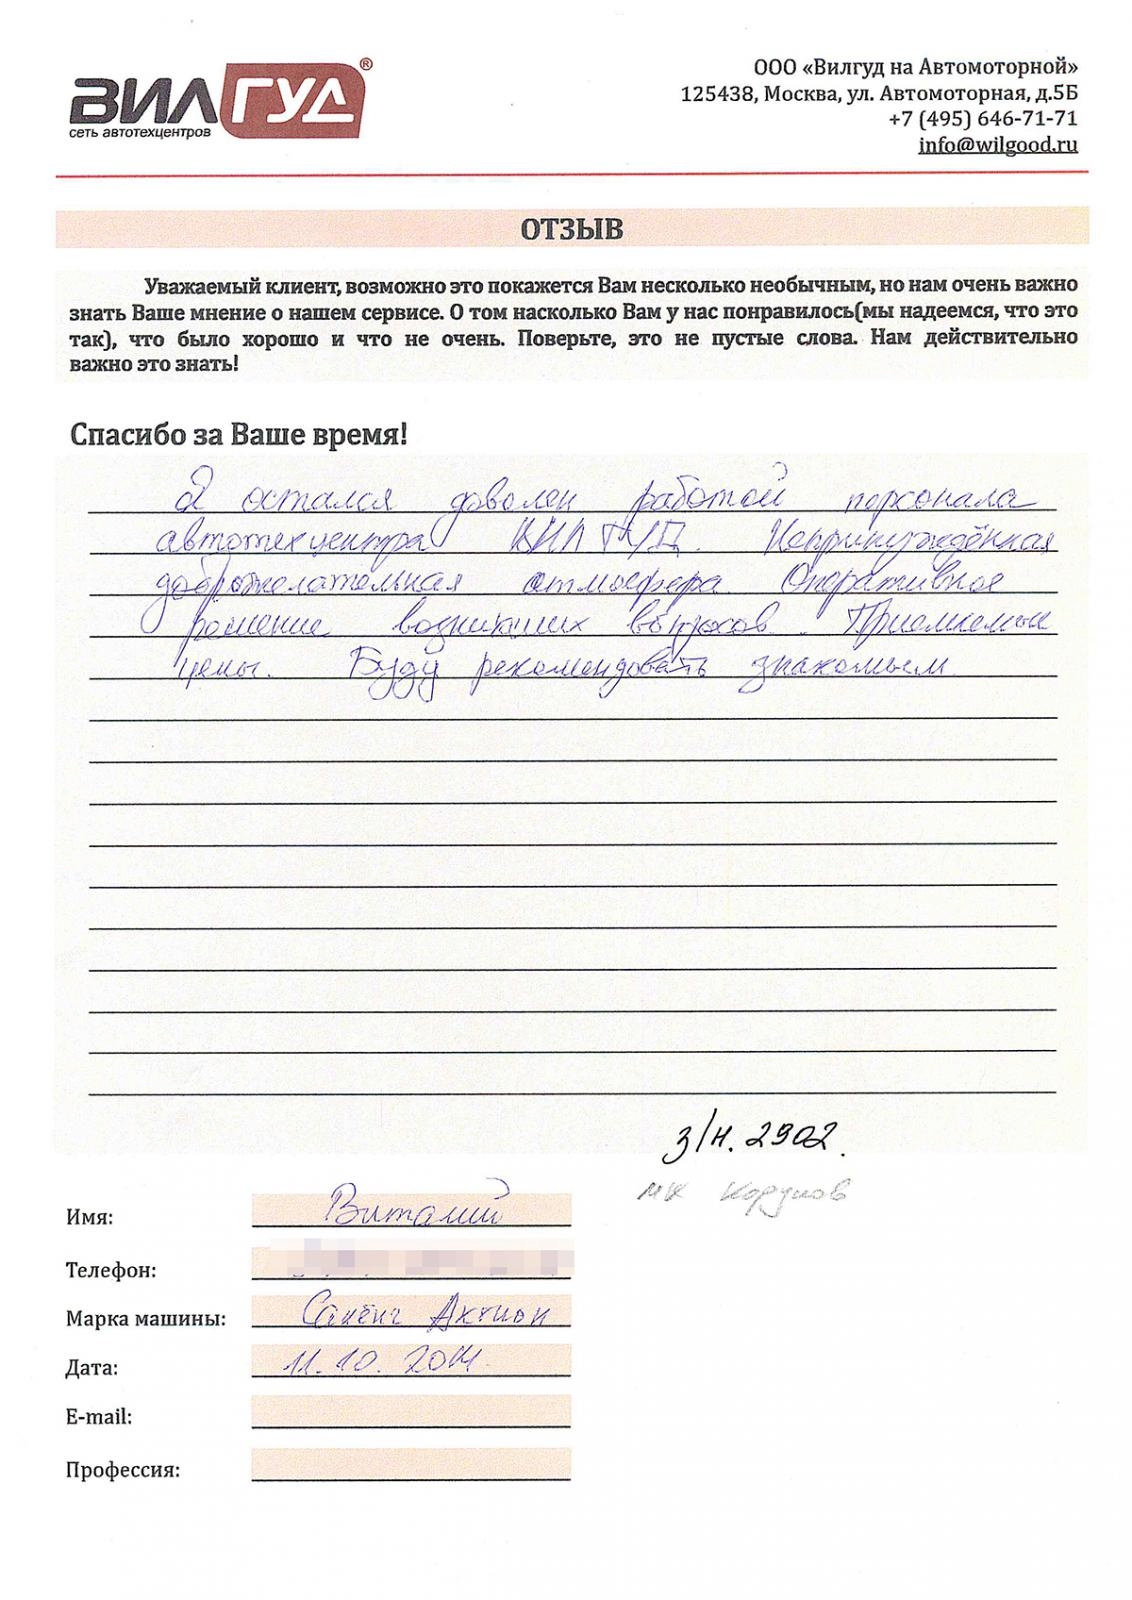 ВИЛГУД®
сеть автотехцентров
ООО «Вилгуд на Автомоторной»
125438, Москва, ул. Автомоторная, д.5Б
+7 (495) 646-71-71
info@wilgood.ru
ОТЗЫВ
Уважаемый клиент, возможно это покажется Вам несколько необычным, но нам очень важно
знать Ваше мнение о нашем сервисе. О том насколько Вам у нас понравилось(мы надеемся, что это
так), что было хорошо и что не очень. Поверьте, это не пустые слова. Нам действительно
важно это знать!
Спасибо за Ваше время!
Я остался доволен работой персонала
автотехцентра ВИЛГУД. Непринуждённая
доброжелательная атмосфера. Оперативное
решение возникших вопросов. Приемлемые
цены. Буду рекомендовать знакомым.
з/н. 2902.
МК Корунов
Имя: Виталий
Телефон:
Марка машины: Санёнг Актион
Дата: 11.10.2014
E-mail:
Профессия: